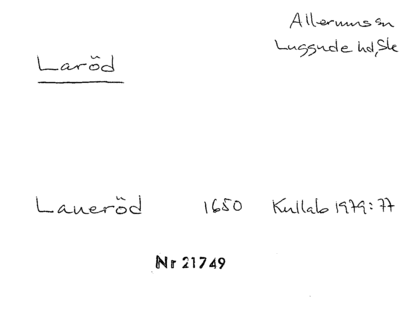 Allerums sn
Luggude hd, Sk
Laröd
Laueröd 1650 Kullab 1979: 77
Nr 21749